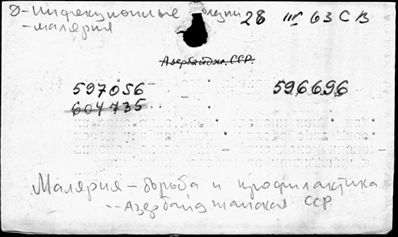 Д-Инфекционные
-малярия
28 III 63 СВ
Азербайдж. ССР.
597056 596696
604735
Малярия - борьба и профилактика
--Азербайджанская ССР